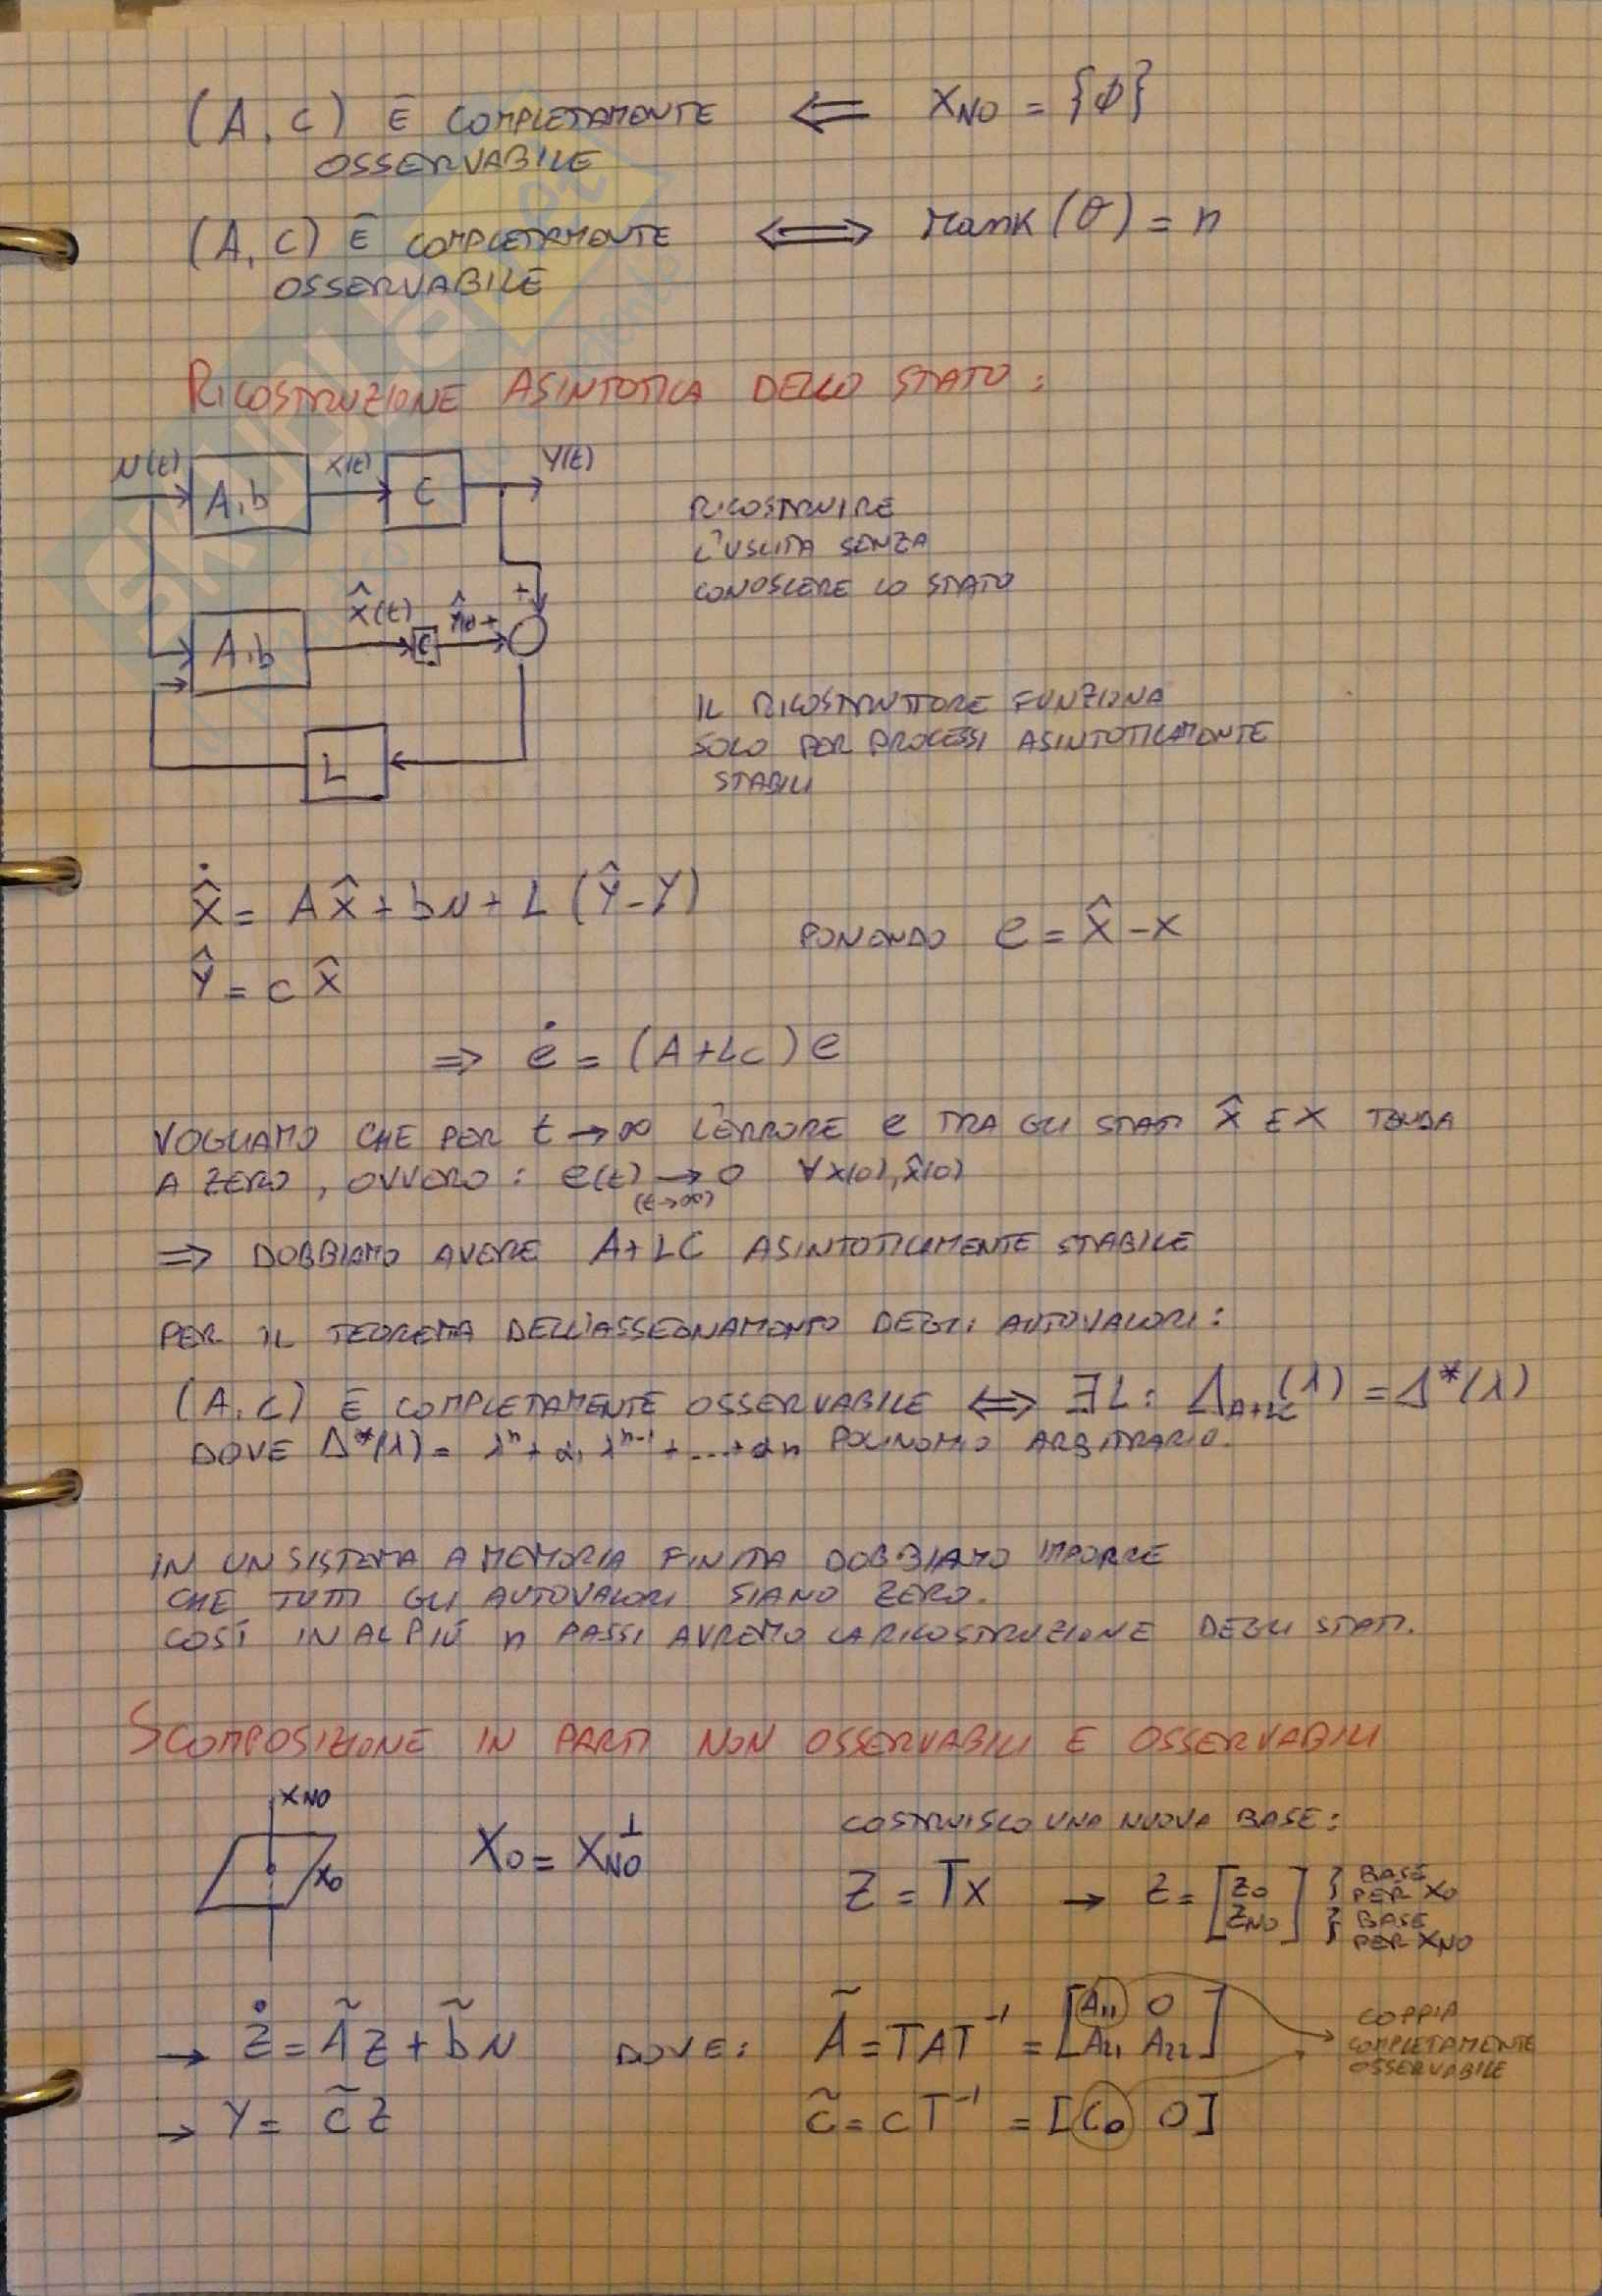 (A, C) È COMPLETAMENTE ⇐ X_NO = {∅}
OSSERVABILE
(A, C) È COMPLETAMENTE ⇔ rank(O) = n
OSSERVABILE
RICOSTRUZIONE ASINTOTICA DELLO STATO:
u(t) A,b x(t) C y(t)
RICOSTRUIRE
L'USCITA SENZA
CONOSCERE LO STATO
+
A,b x̂(t) C ŷ(t) +
IL RICOSTRUTTORE FUNZIONA
SOLO PER PROCESSI ASINTOTICAMENTE
STABILI
L
x̂̇ = A x̂ + b u + L (ŷ - y)
PONENDO e = x̂ - x
ŷ = c x̂
⇒ ė = (A + LC) e
VOGLIAMO CHE PER t → ∞ L'ERRORE e TRA GLI STATI x̂ E x TENDA
A ZERO, OVVERO: e(t) → 0 ∀ x(0), x̂(0)
(t→∞)
⇒ DOBBIAMO AVERE A + LC ASINTOTICAMENTE STABILE
PER IL TEOREMA DELL'ASSEGNAMENTO DEGLI AUTOVALORI:
(A, C) È COMPLETAMENTE OSSERVABILE ⇔ ∃ L: Δ_A+LC(λ) = Δ*(λ)
DOVE Δ*(λ) = λⁿ + α₁ λⁿ⁻¹ + ... + αn POLINOMIO ARBITRARIO.
IN UN SISTEMA A MEMORIA FINITA DOBBIAMO IMPORRE
CHE TUTTI GLI AUTOVALORI SIANO ZERO.
COSÌ IN AL PIÙ n PASSI AVREMO LA RICOSTRUZIONE DEGLI STATI.
SCOMPOSIZIONE IN PARTI NON OSSERVABILI E OSSERVABILI
X_NO
X_O
X_O = X_NO^⊥
COSTRUISCO UNA NUOVA BASE:
Z = Tx → Z = [Z_O Z_NO] } BASE
PER X_O
} BASE
PER X_NO
→ ż = Ã z + b̃ u DOVE: Ã = TAT⁻¹ = [A₁₁ 0
A₂₁ A₂₂]
COPPIA
COMPLETAMENTE
OSSERVABILE
→ y = c̃ z
c̃ = cT⁻¹ = [C_O 0]